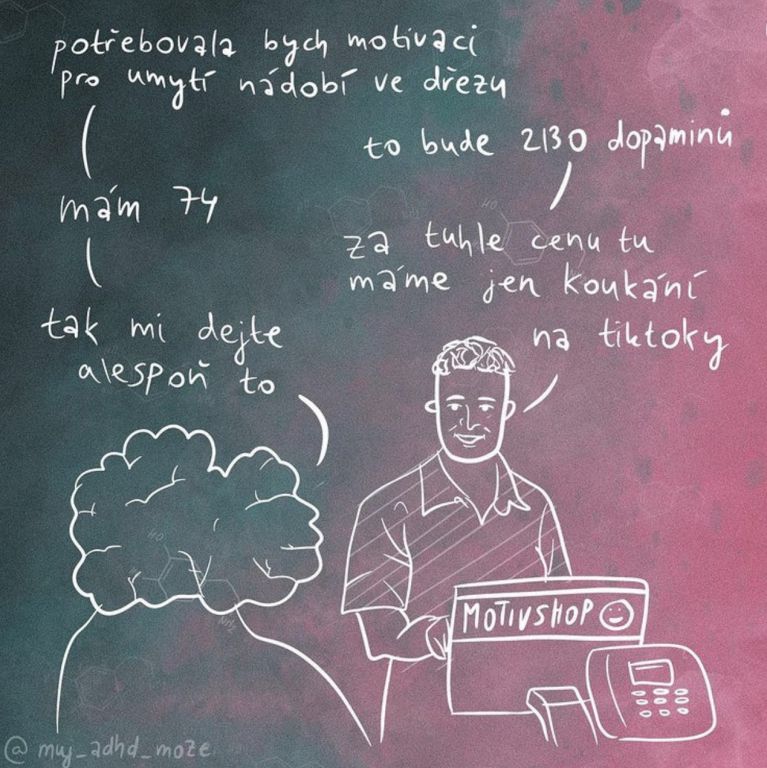 potřebovala bych motivaci
pro umytí nádobí ve dřezu
to bude 2130 dopaminů
mám 74
za tuhle cenu tu
máme jen koukání
na tiktoky
tak mi dejte
alespoň to
MOTIVSHOP
HO
HO
NH₂
@muj_adhd_moze